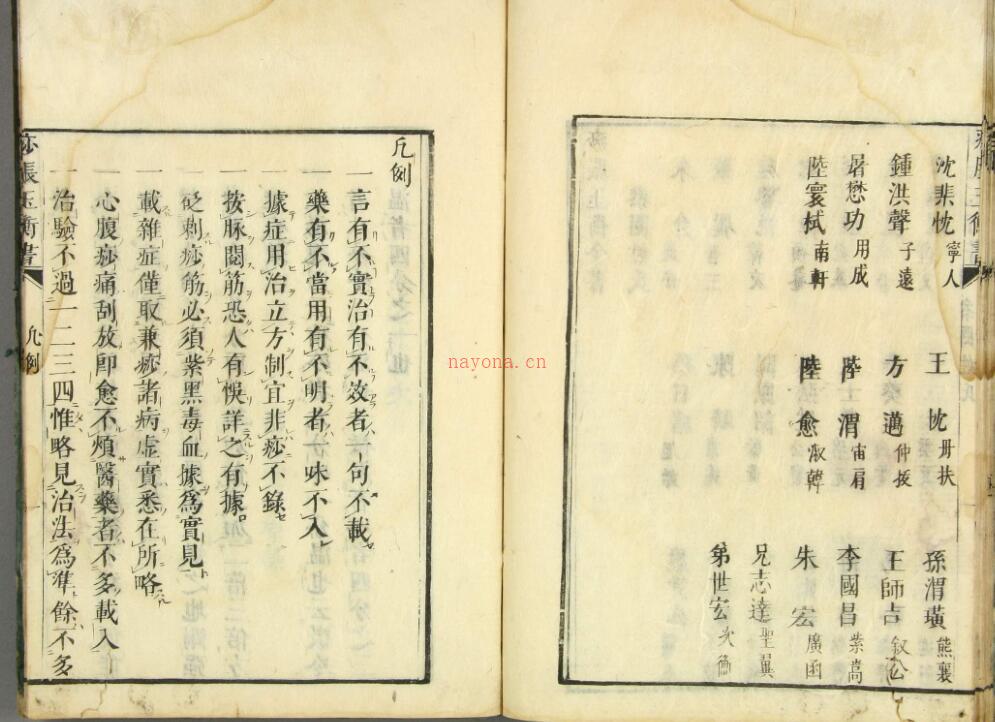 沈棐忱 寧人
王忱 丹扶
孫渭璜 熊襄
鍾洪聲 子遠
方邁 仲扳
王師吉 叙公
屠懋功 用成
陸渭 宙肩
李國昌 紫嵩
陸寰栻 南軒
陸愈 淑韓
朱宏 廣函
兄志達 聖翼
弟世宏 次衜
凡例
一言有不實治有不效者一句不載
一藥有不當用有不明者一味不入
一據症用治立方制宜非痧不錄
一按脉閱筋恐人有悞詳之有據
一砭刺痧筋必須紫黑毒血據爲實見
一載雜症僅取兼痧諸病虛實悉在所略
一心腹痧痛刮放卽愈不煩醫藥者不多載入
一治驗不過一二三四惟略見治法爲準餘不多
痧脹玉衡書
凡例
nayona.cn